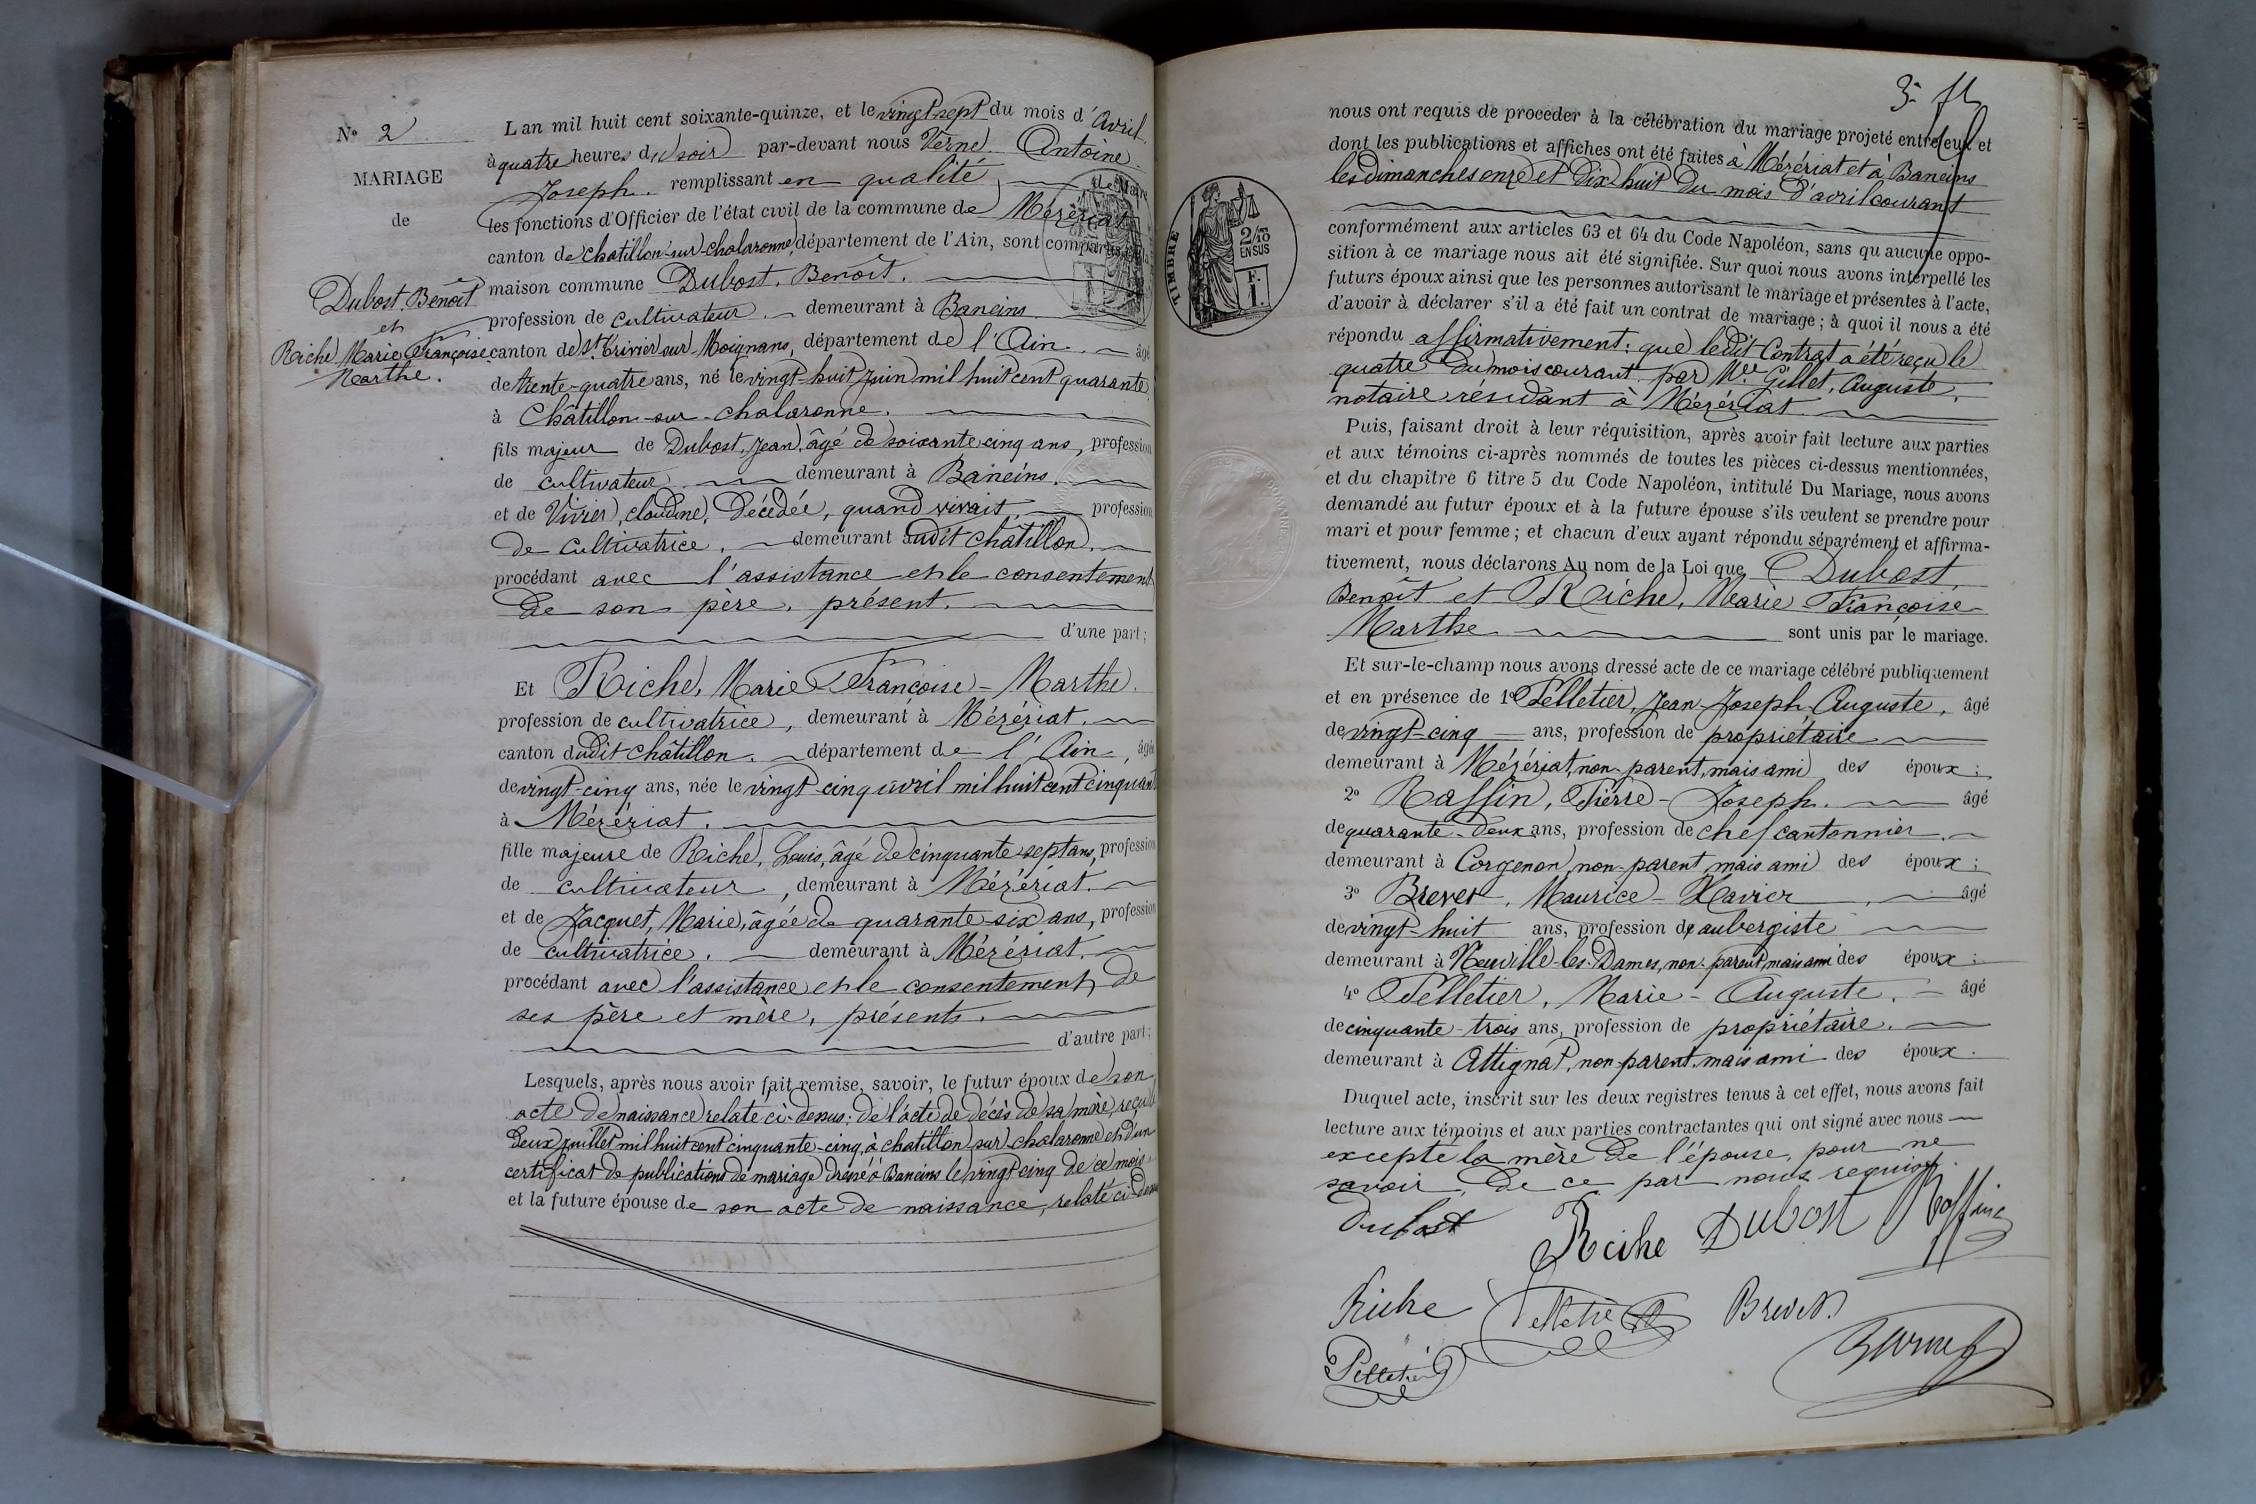 N° 2
MARIAGE
de
Dubost. Benoît
et
Riche, Marie Françoise
Marthe.
L'an mil huit cent soixante-quinze, et le vingt-sept du mois d'Avril
à quatre heures du soir par-devant nous Verne, Antoine
Joseph. remplissant en qualité de Maire
les fonctions d'Officier de l'état civil de la commune de Mézériat
canton de chatillon-sur-chalaronne, département de l'Ain, sont comparus, en la
maison commune Dubost. Benoît.
profession de cultivateur. demeurant à Baneins
canton de St. Trivier sur Moignans, département de l'Ain. âgé
de trente-quatre ans, né le vingt-huit Juin mil huit cent quarante
à Châtillon-sur-chalaronne.
fils majeur de Dubost, Jean, âgé de soixante cinq ans, profession
de cultivateur demeurant à Baneins.
et de Vivier, claudine, Décédée, quand vivait, profession
de cultivatrice, demeurant audit châtillon.
procédant avec l'assistance et le consentement
de son père, présent.
d'une part;
Et Riche, Marie Françoise-Marthe.
profession de cultivatrice, demeurant à Mézériat.
canton dudit châtillon. département de l'Ain, âgée
de vingt-cinq ans, née le vingt-cinq avril mil huit cent cinquante
à Mézériat.
fille majeure de Riche, Louis, âgé de cinquante-sept ans, profession
de cultivateur, demeurant à Mézériat.
et de Jacquet, Marie, âgée de quarante-six ans, profession
de cultivatrice. demeurant à Mézériat.
procédant avec l'assistance et le consentement de
ses père et mère, présents.
d'autre part;
Lesquels, après nous avoir fait remise, savoir, le futur époux de son
acte de naissance relaté ci-dessus: de l'acte de décès de sa mère, reçu le
deux juillet mil huit cent cinquante-cinq, à chatillon sur-chalaronne et d'un
certificat de publications de mariage dressé à Baneins le vingt-cinq de ce mois.
et la future épouse de son acte de naissance, relaté ci-dessus
TIMBRE
2/10 EN SUS
F. 1.
nous ont requis de proceder à la célébration du mariage projeté entre eux et
dont les publications et affiches ont été faites à Mézériat et à Baneins
les dimanches onze et Dix-huit du mois d'avril courant
conformément aux articles 63 et 64 du Code Napoléon, sans qu'aucune oppo-
sition à ce mariage nous ait été signifiée. Sur quoi nous avons interpellé les
futurs époux ainsi que les personnes autorisant le mariage et présentes à l'acte,
d'avoir à déclarer s'il a été fait un contrat de mariage; à quoi il nous a été
répondu affirmativement: que ledit Contrat a été reçu le
quatre du mois courant par Me. Gillet, Auguste,
notaire résidant à Mézériat
Puis, faisant droit à leur réquisition, après avoir fait lecture aux parties
et aux témoins ci-après nommés de toutes les pièces ci-dessus mentionnées,
et du chapitre 6 titre 5 du Code Napoléon, intitulé Du Mariage, nous avons
demandé au futur époux et à la future épouse s'ils veulent se prendre pour
mari et pour femme; et chacun d'eux ayant répondu séparément et affirma-
tivement, nous déclarons Au nom de la Loi que Dubost,
Benoît et Riche, Marie Françoise
Marthe sont unis par le mariage.
Et sur-le-champ nous avons dressé acte de ce mariage célébré publiquement
et en présence de 1° Pelletier, Jean-Joseph Auguste, âgé
de vingt-cinq ans, profession de propriétaire
demeurant à Mézériat, non-parent, mais ami des époux;
2° Raffin, Pierre-Joseph. âgé
de quarante-deux ans, profession de chef cantonnier
demeurant à Corgenon, non-parent mais ami des époux;
3° Brevet, Maurice-Xavier âgé
de vingt-huit ans, profession d'aubergiste
demeurant à Neuville-les-Dames, non-parent, mais ami des époux;
4° Pelletier, Marie-Auguste. âgé
de cinquante-trois ans, profession de propriétaire.
demeurant à Attignat, non-parent, mais ami des époux.
Duquel acte, inscrit sur les deux registres tenus à cet effet, nous avons fait
lecture aux témoins et aux parties contractantes qui ont signé avec nous
excepté la mère de l'épouse, pour ne
savoir, de ce par nous requise.
Dubost Riche Dubost Raffin
Riche Pelletier Brevet
Pelletier